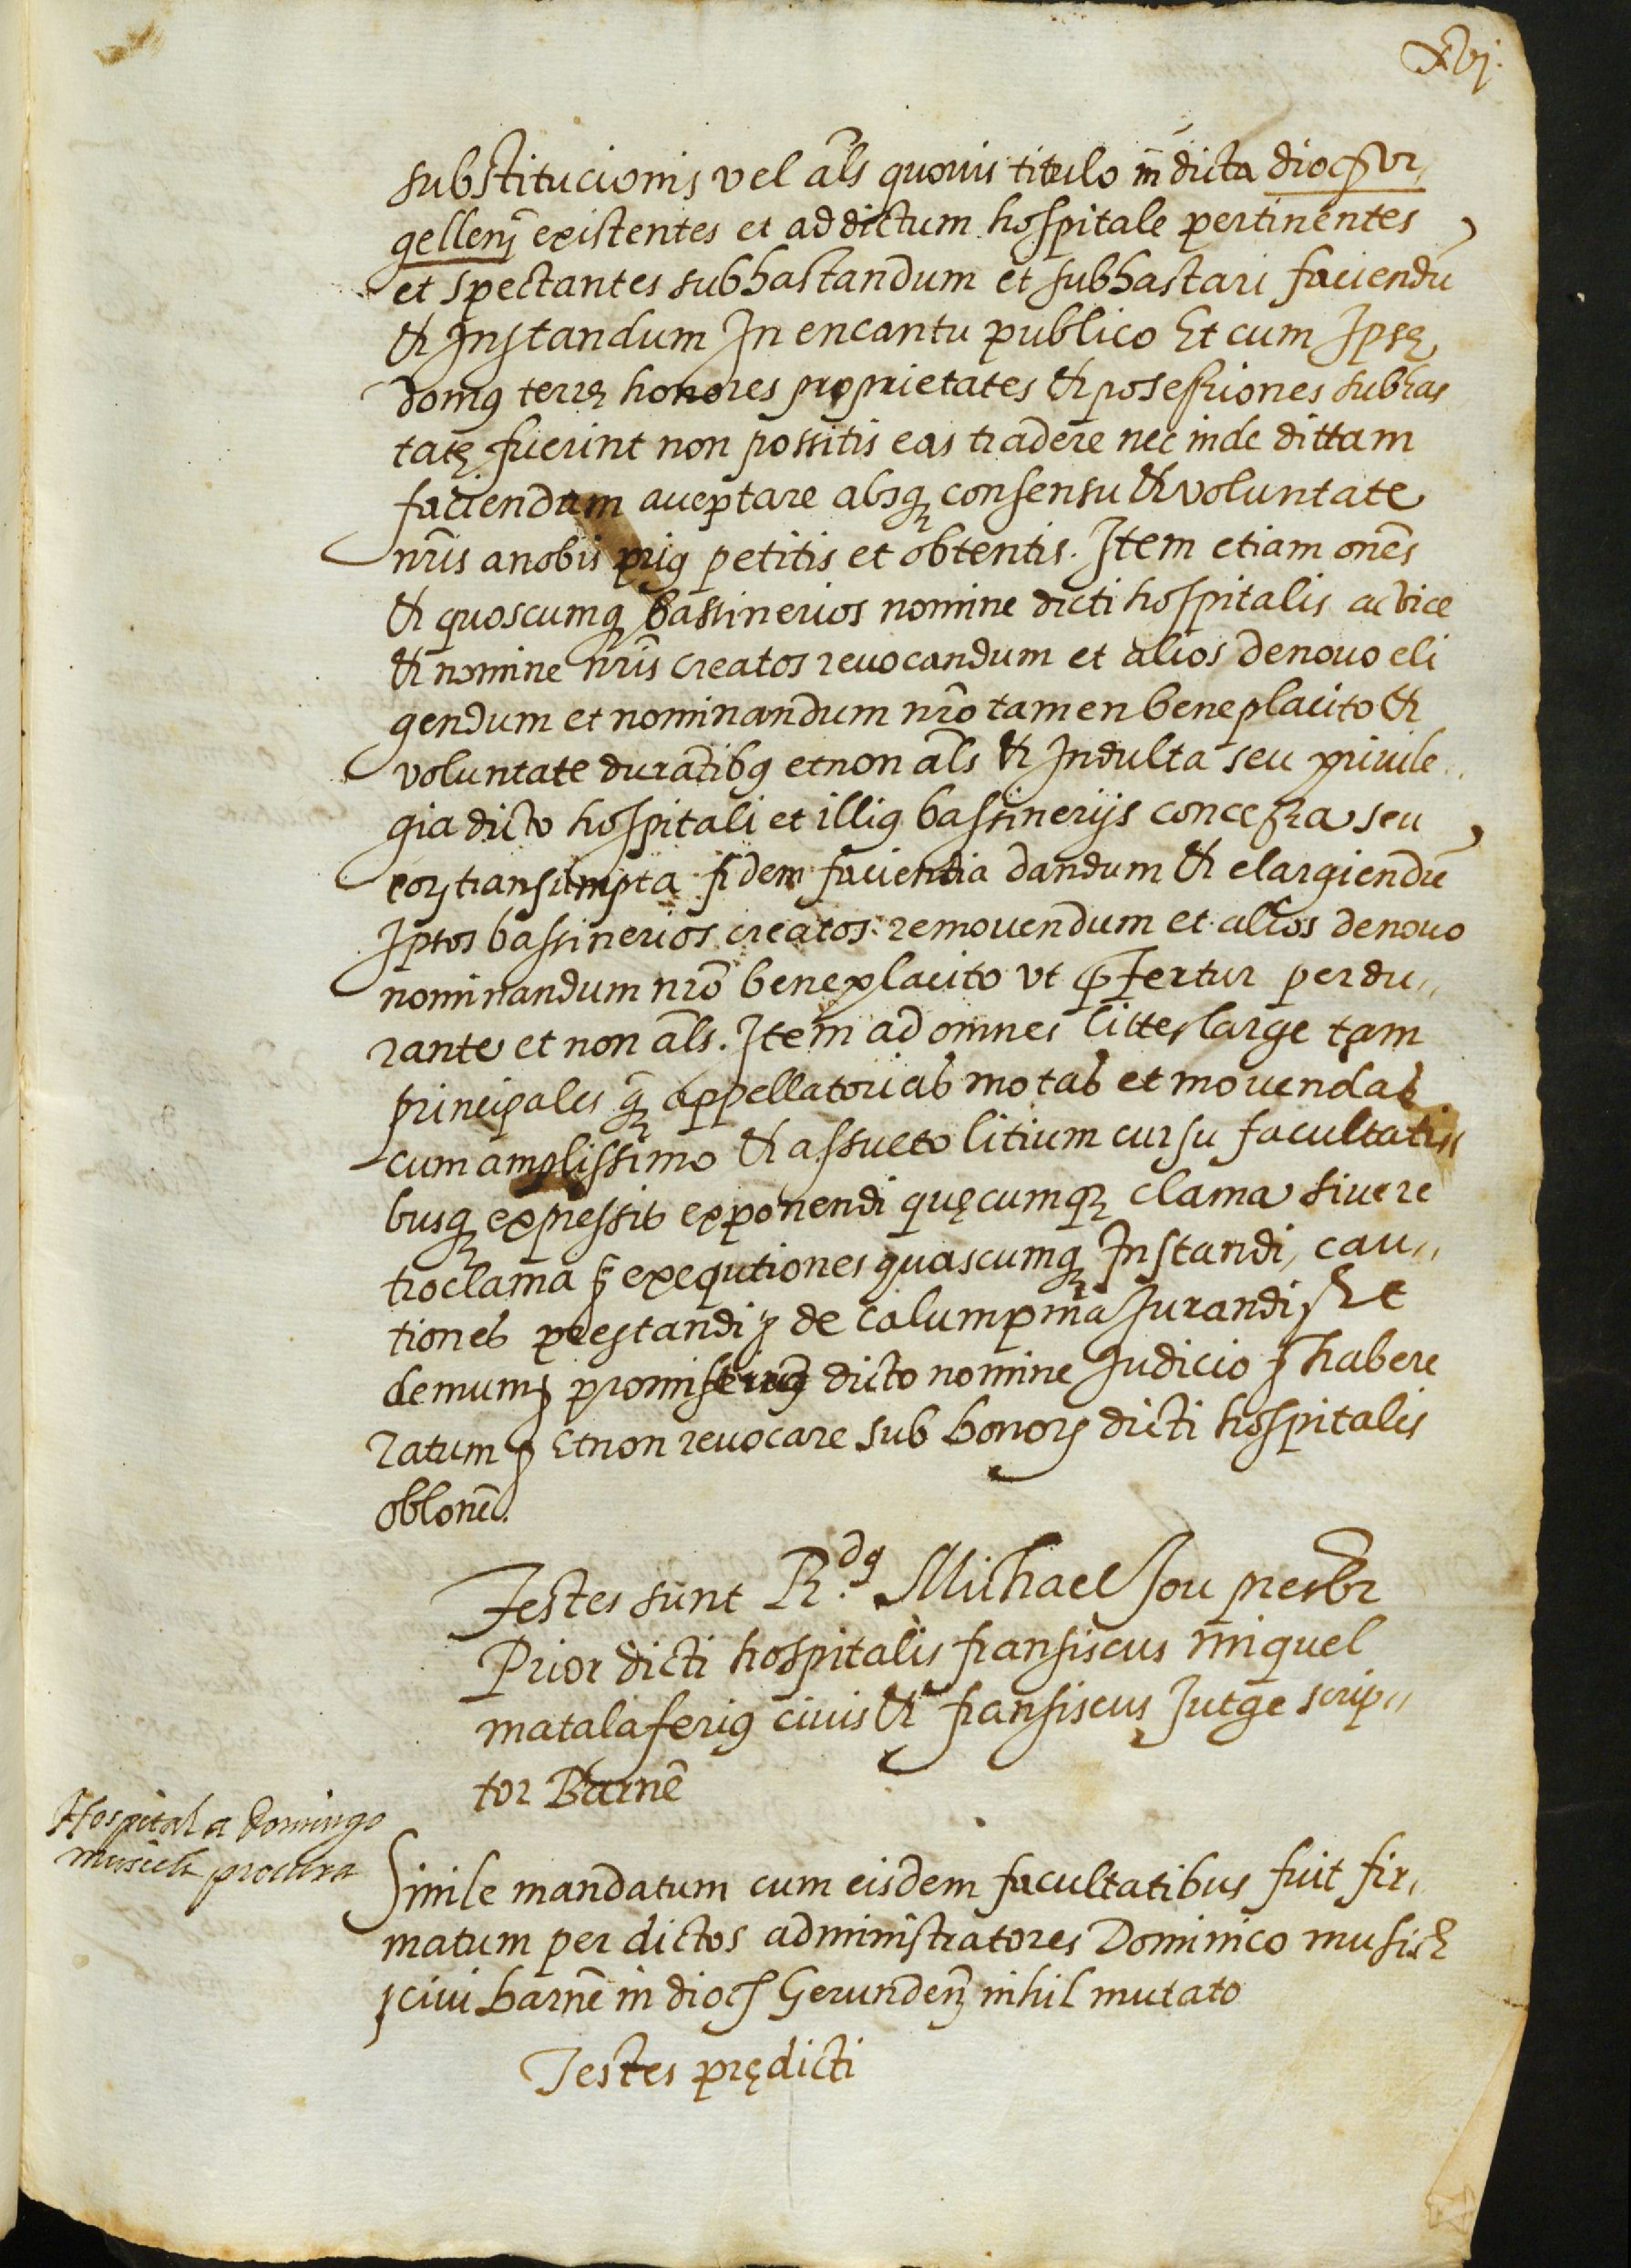 xvj.
substitucionis vel al̃s quovis titulo in dicta dioc̃ vr,,
gelleñ existentes et ad dictum hospitale pertinentes
et spectantes subhastandum et subhastari faciendũ
et Instandum In encantu publico Et cum Ipsę
domꝰ terrę honores proprietates et posessiones subhas
tatę fuerint non possitis eas tradere nec inde dittam
faciendam acceptare absqꝫ consensu et voluntate
nr̃is a nobis priꝰ petitis et obtentis. Item etiam om̃es
et quoscumqꝫ bassinerios nomine dicti hospitalis ac vice
et nomine nr̃is creatos revocandum et alios denouo eli
gendum et nominandum nr̃o tamen beneplacito et
voluntate durãtibꝰ et non al̃s et Indulta seu priuile,,
gia dicto hospitali et illiꝰ bassinerijs concessa seu
eoꝝ transũmpta fidem facientia dandum et elargiendũ
Ip̃tos bassinerios creatos removendum et alios denouo
nominandum nr̃o beneplacito vt p̃fertur perdu,,
rante et non al̃s. Item ad omnes lites large tam
principales qꝫ appellatorias motas et movendas
cum amplissimo et assueto litium cursu facultati,,
busqꝫ expressis exponendi quęcumqꝫ clama siue re
troclama ꝭ exequtiones quascumqꝫ Instandi, cau,,
tiones prestandi ꝭ de calumpnia Jurandi ꝭ Et
demumꝭ promiserũt dicto nomine Judicio ꝭ habere
ratum ꝭ Et non revocare sub bonoꝝ dicti hospitalis
oblonẽ.
Testes sunt R.dꝰ Michael Jou presbr̃
Prior dicti hospitalis fransiscus miquel
matalaferiꝰ ciuis et fransiscus Jutge scrip,,
tor Barnẽ
Hospital a Domingo
musich procura
Simile mandatum cum eisdem facultatibus fuit fir,,
matum per dictos administratores Dominico musich
ciui barnẽ in dioc̃ Gerundeñ nihil mutato
Testes prędicti